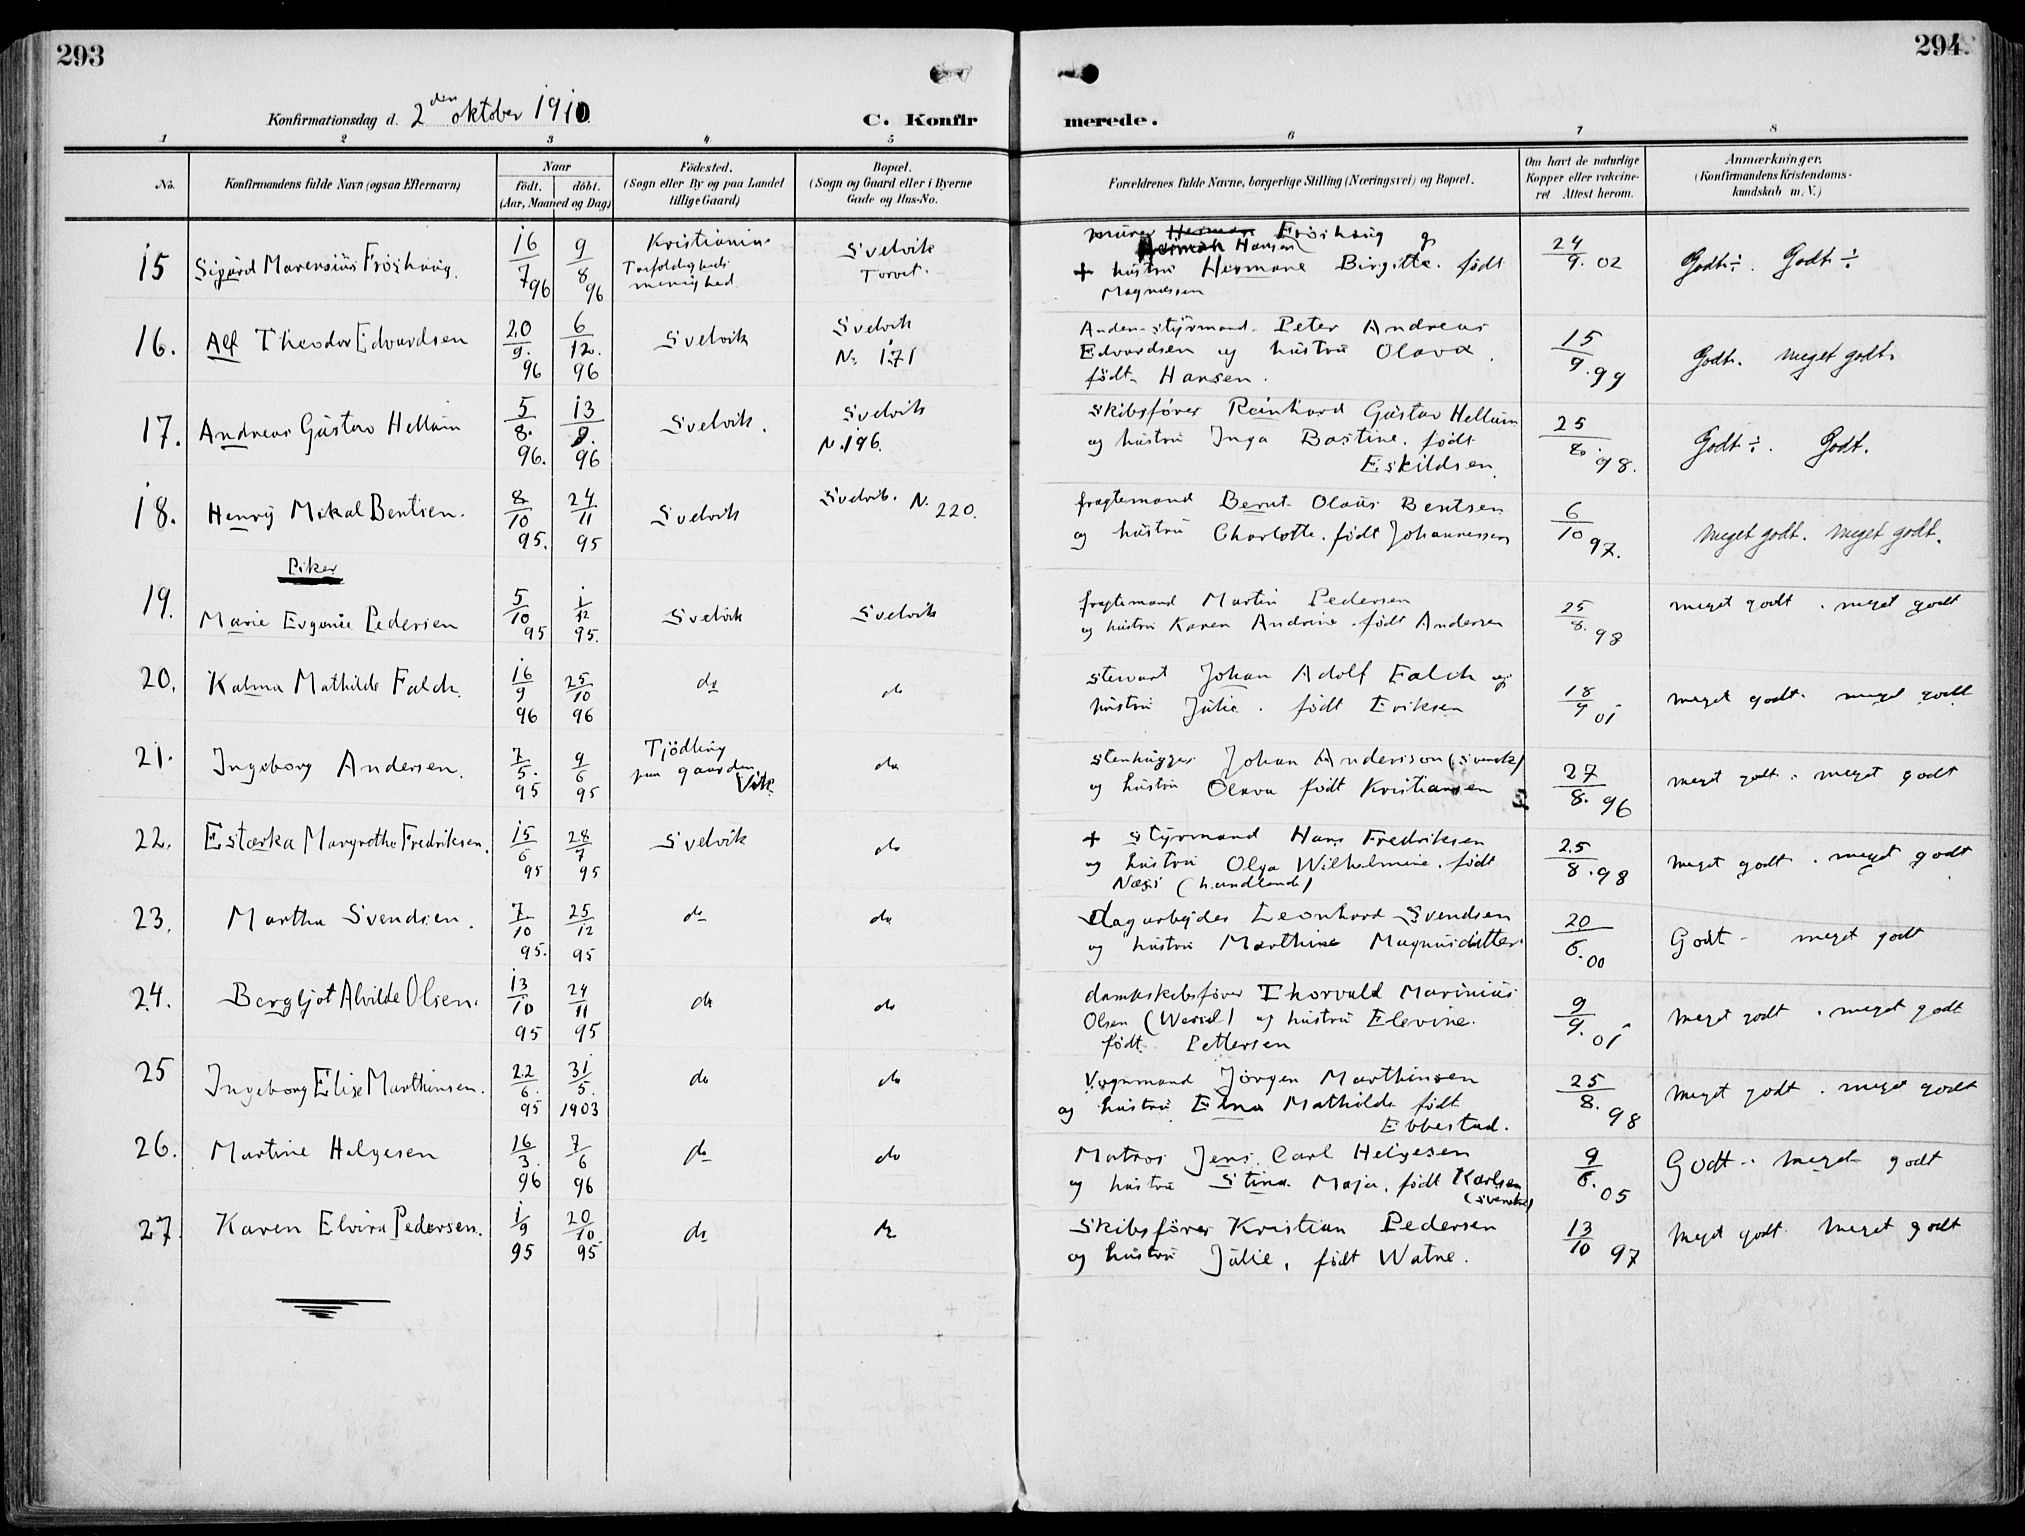 293
294.
Konfirmationsdag d. 2den oktober 1910
C. Konfir
merede.
1 2 3 4 5 6 7 8
No.
Konfirmandens fulde Navn (ogsaa Efternavn)
Naar
födt. döbt.
(Aar, Maaned og Dag)
Födested.
(Sogn eller By og paa Landet
tillige Gaard)
Bopæl.
(Sogn og Gaard eller i Byerne
Gade og Hus-No.
Forældrenes fulde Navne, borgerlige Stilling (Næringsvei) og Bopæl.
Om havt de naturlige
Kopper eller vakcine-
ret Attest herom.
Anmærkninger.
(Konfirmandens Kristendoms-
kundskab m. V.)
15 Sigurd Marensius Fröshaug. 16/7 96 9/8 96 Kristiania
Trefoldigheds
menighed
Svelvik
Torvet.
murer Herman Fröshaug og
Herman Hansen
+ hustru Hermane Birgitte. født
Magnussen
24/9. 02 Godt ÷. Godt ÷
16. Alf Theodor Edvardsen 20/9. 96 6/12. 96 Svelvik
Svelvik
N: 171
Anden styrmand Peter Andreas
Edvardsen og hustru Olava.
født Hansen.
15/9. 99 Godt. meget godt.
17. Andreas Gustav Hellum 5/8. 96. 13/9. 96 Svelvik.
Svelvik
N. 196.
Skibsfører Reinhard Gustav Hellum
og hustru Inga Bastine. født
Eskildsen.
25/8. 98. Godt ÷. Godt.
18. Henry Mikal Bentsen. 8/10 95. 24/11 95 Svelvik Svelvik. N. 220.
fragtemand Bernt Olaus Bentsen
og hustru Charlotte. født Johannessen
6/10 97. meget godt. meget godt.
Piker
19. Marie Evgenie Pedersen 5/10 95 1/12 95. Svelvik Svelvik
fragtemand Martin Pedersen
og hustru Karen Andrine. født Andersen
25/8. 98 meget godt. meget godt
20. Kalma Mathilde Falch. 16/9 96 25/10 96 do do
stewart Johan Adolf Falch og
hustru Julie. født Eriksen
18/9 01 meget godt. meget godt
21. Ingeborg Andersen. 7/5. 95 9/6 95 Tjödling
paa gaarden
Vik.
do
stenhugger Johan Andersson (svensk)
og hustru Olava født Kristiansen
27/8. 96 meget godt. meget godt
22. Estærka Margrethe Fredriksen. 15/6 95 28/7 95 Svelvik do
+ styrmand Hans Fredriksen
og hustru Olga Wilhelmine. født
Næss (handlende)
25/8. 98 meget godt. meget godt
23. Martha Svendsen. 7/10 95. 25/12 95 do do
dagarbejder Leonhard Svendsen
og hustru Marthine Magnusdatter.
20/6. 00 Godt - meget godt
24. Bergljot Alvilde Olsen. 13/10 95 24/11 95 do do
dampskibsfører Thorvald Marinius
Olsen (Wessel) og hustru Elevine.
født. Pettersen
9/9. 01 meget godt. meget godt
25 Ingeborg Elise Marthinsen. 22/6. 95 31/5. 1903 do do
Vognmand Jörgen Marthinsen
og hustru Elna Mathilde født
Ebbestad.
25/8. 98 meget godt. meget godt
26. Martine Helgesen 16/3. 96 7/6 96 do do
Matros Jens Carl Helgesen
og hustru Stina Maja. født Karlsen
(svenske)
9/6. 05 Godt - meget godt
27. Karen Elvira Pedersen. 1/9 95 20/10 95 do do
Skibsfører Kristian Pedersen
og hustru Julie, født Watne.
13/10 97 meget godt meget godt